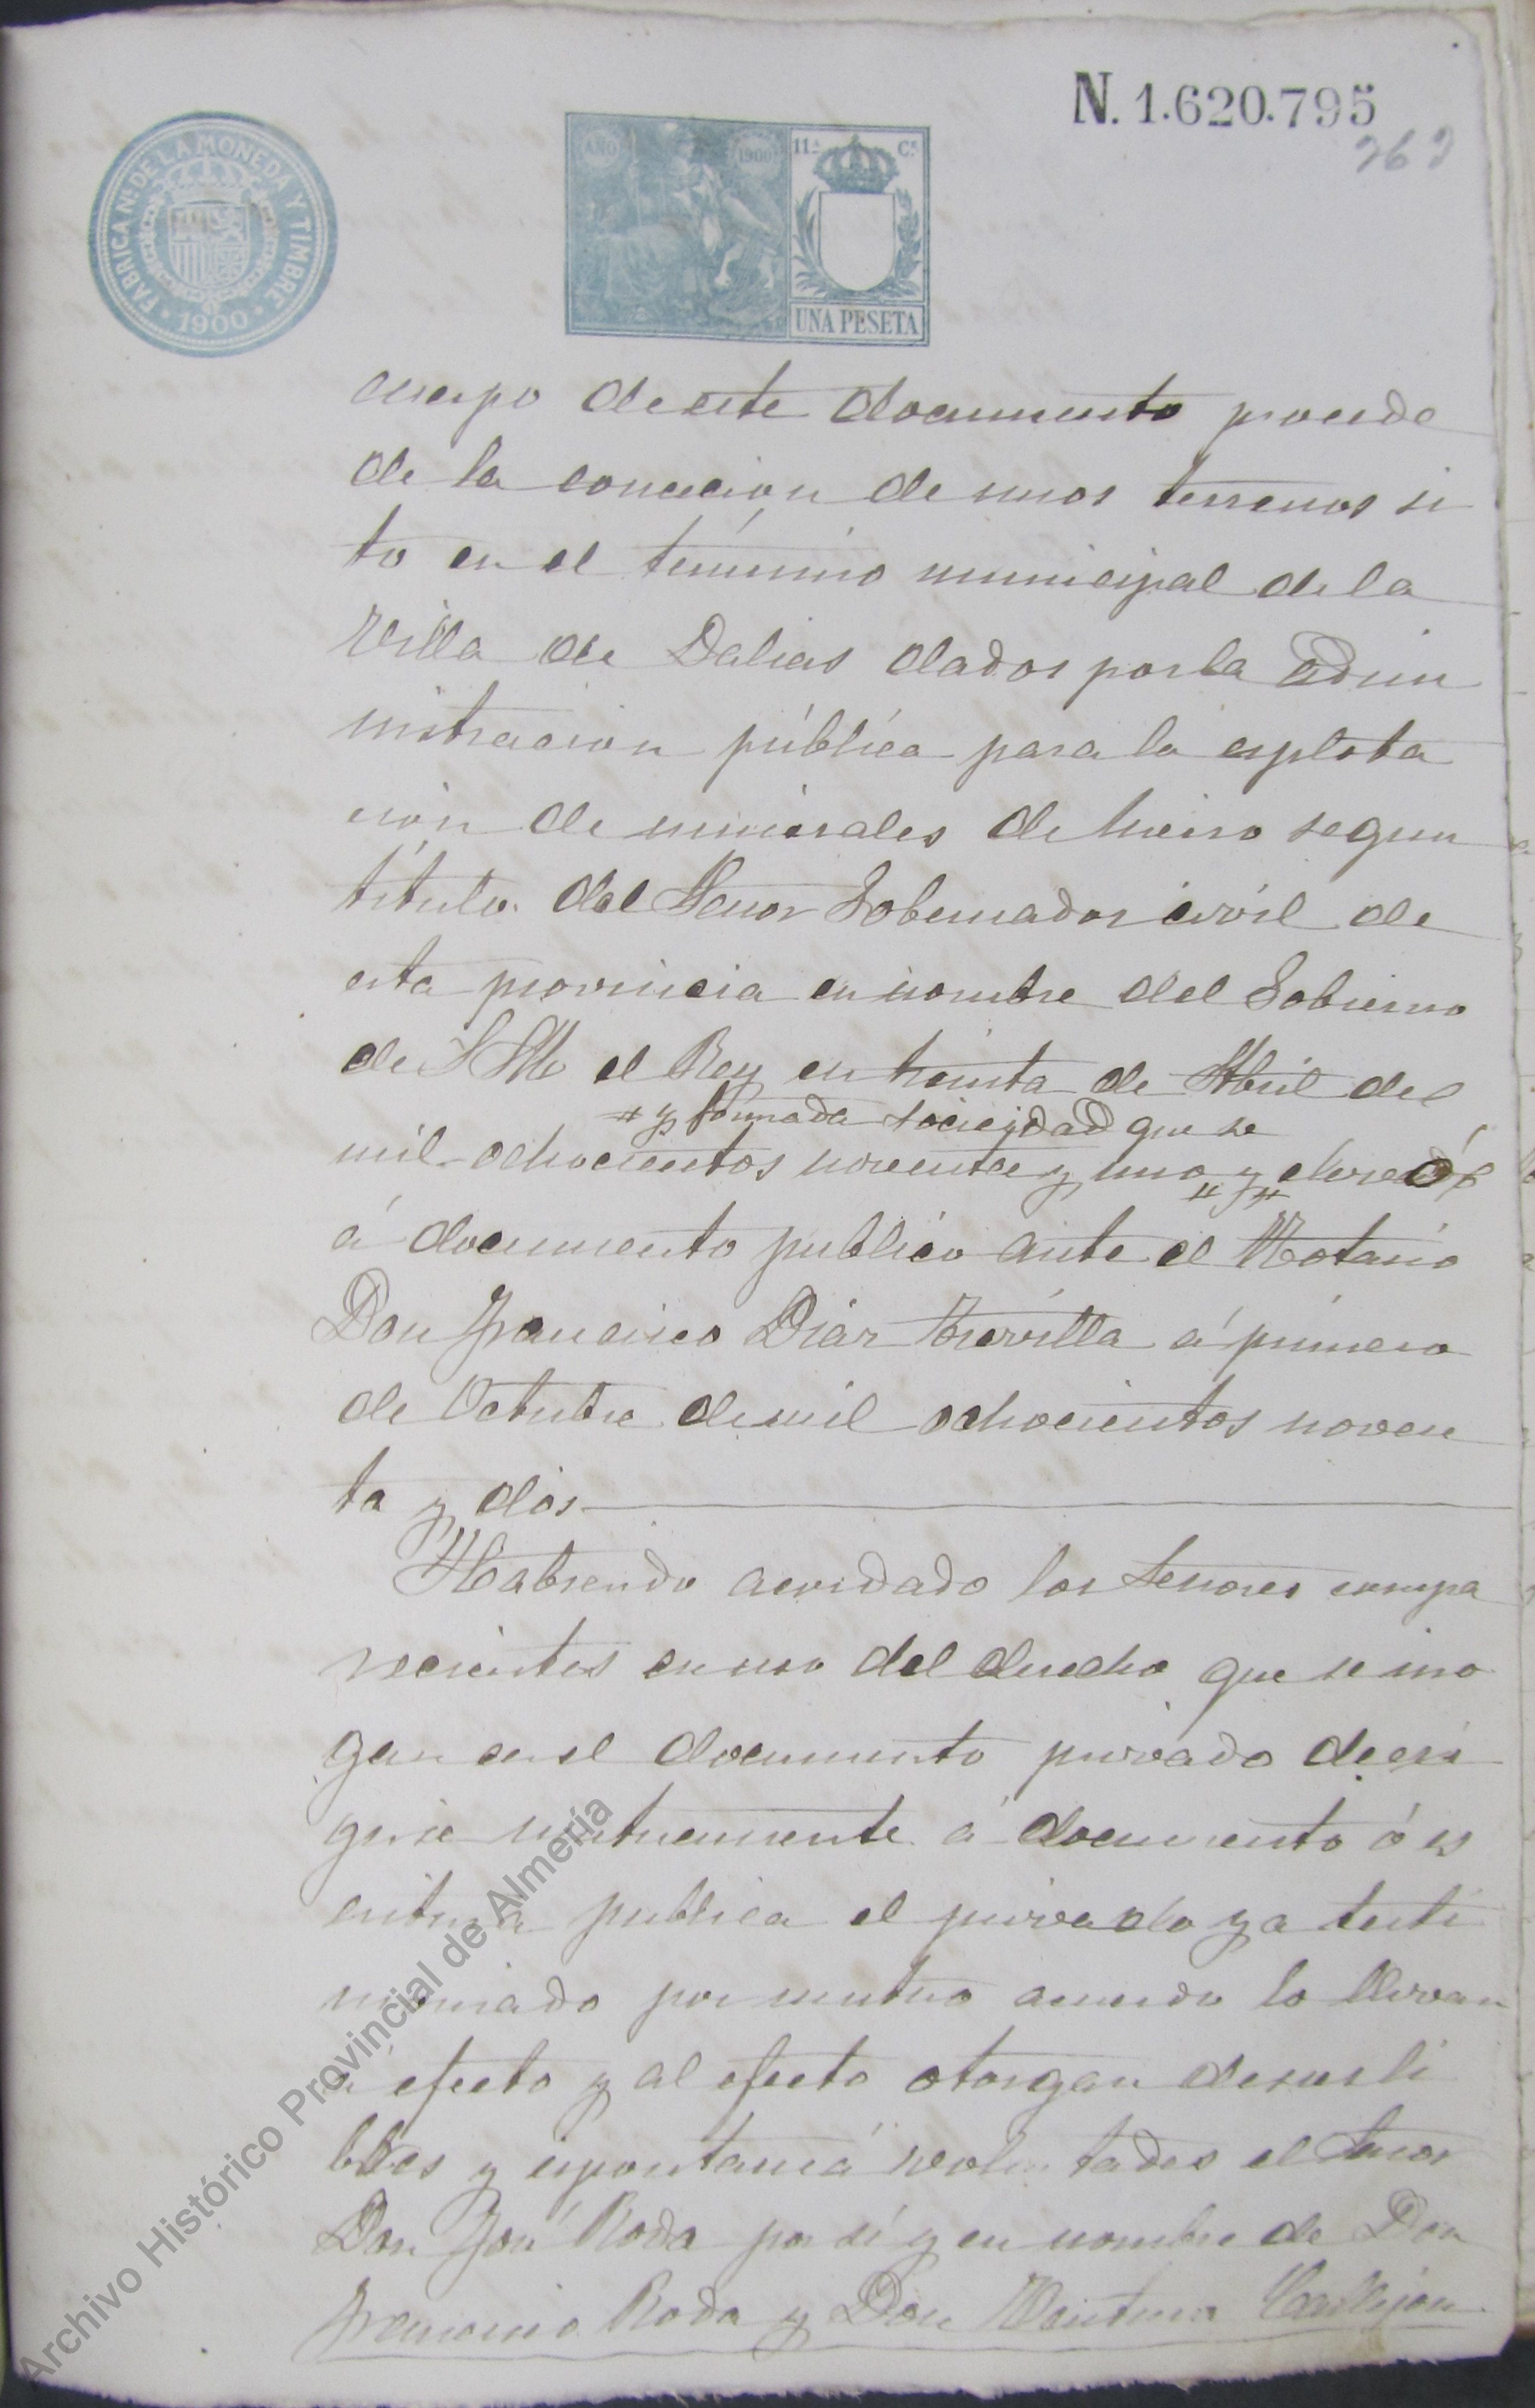 N. 1.620.795
262
FABRICA Nal DE LA MONEDA Y TIMBRE
1900
AÑO 1900 11ª Cª
UNA PESETA
cuerpo de este documento procede
de la concecion de unos terrenos si
to en el término municipal de la
Villa de Dalias dados por la admi
nistracion pública para la esplota
ción de minerales de hierro segun
título del Señor Gobernador civil de
esta provincia en nombre del Gobierno
de S M el Rey en treinta de Abril del
# y formada sociedad que se
mil ochocientos noventa y uno y elevada
á documento publico ante el Notario
Don Francisco Diaz Trevilla á primero
de Octubre de mil ochocientos noven
ta y dos
Habiendo acordado los Señores compa
recientes en uso del derecho que se iro
gan en el documento privado de exi
girse mutuamente á documento ó es
critura publica el privado ya testi
moniado por mutuo acuerdo lo llevan
á efecto y al efecto otorgan de sus li
bres y espontanea voluntades el Señor
Don José Roda por sí y en nombre de Don
Roda y Don Ventura Callejon
Archivo Histórico Provincial de Almería